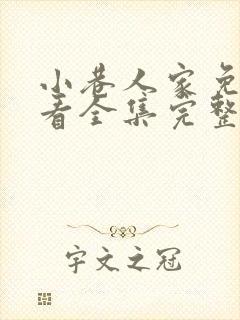 小巷人家免
看全集完整
宇文之冠